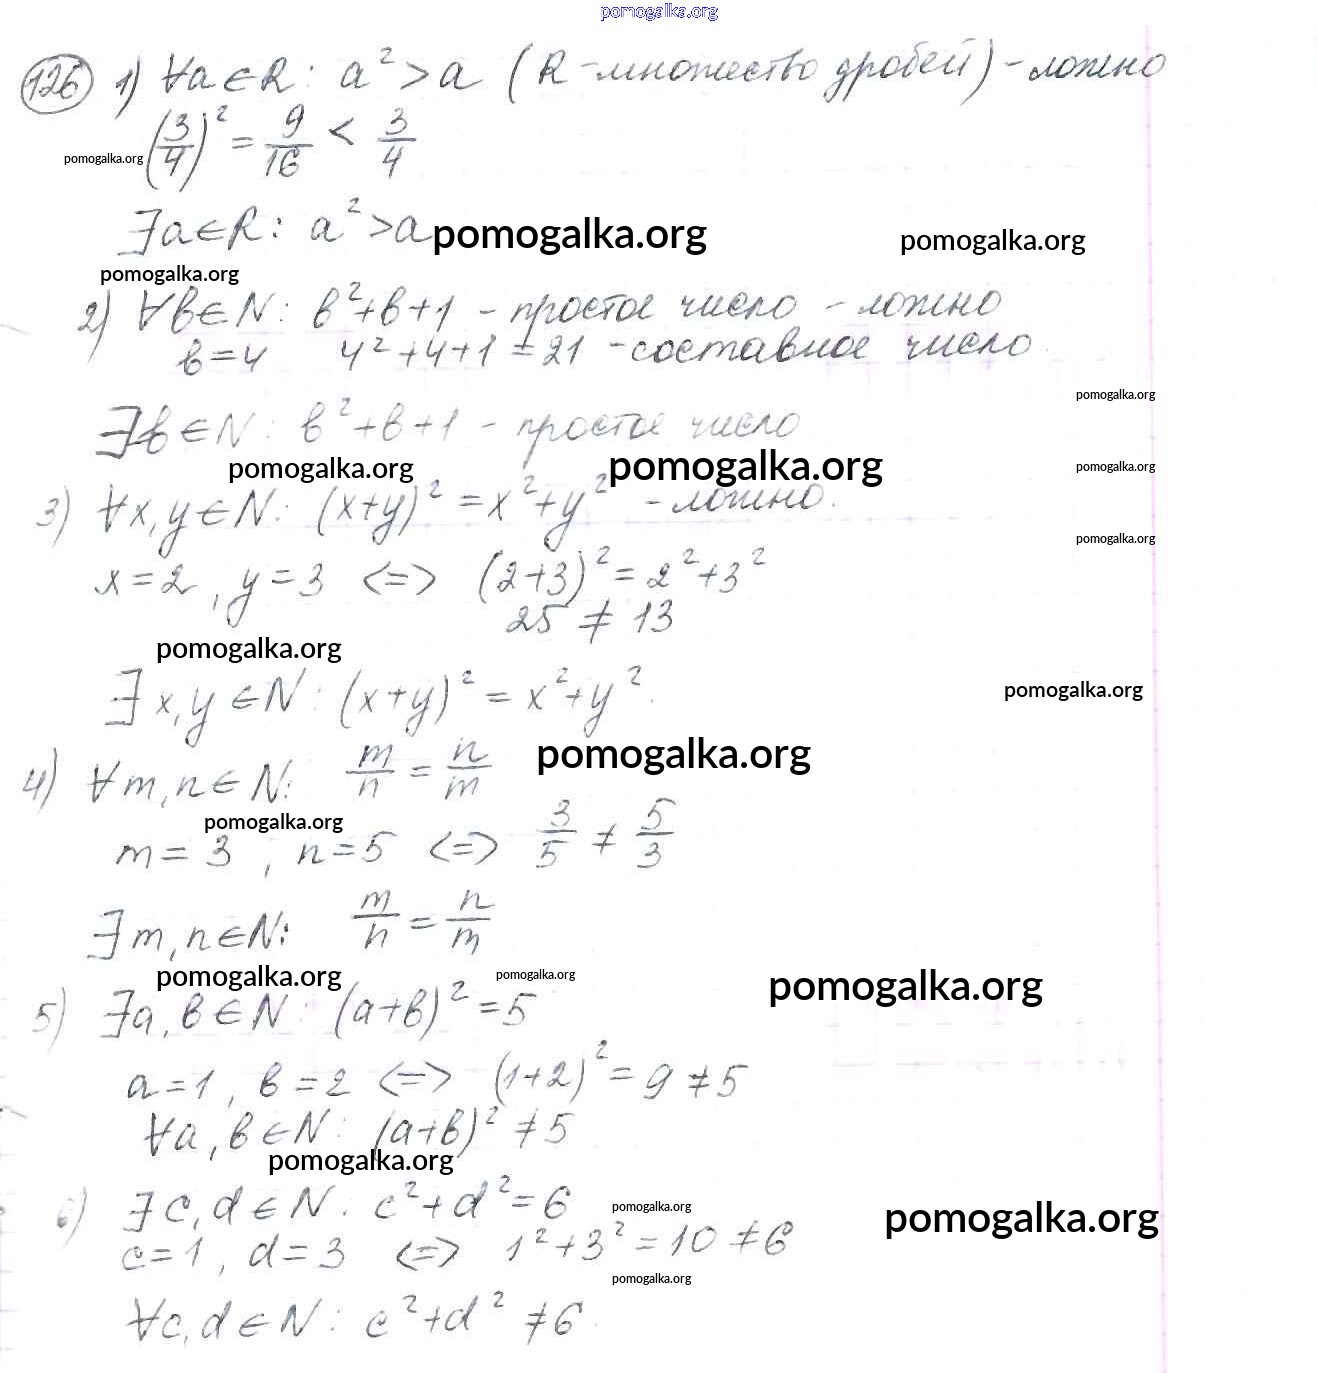 pomogalka.org
126 1) ∀a∈R: a² > a (R - множество дробей) - ложно
pomogalka.org (3/4)² = 9/16 < 3/4
∃a∈R: a² > a pomogalka.org pomogalka.org
pomogalka.org
2) ∀b∈N: b²+b+1 - простое число - ложно
b=4 4²+4+1=21 - составное число
pomogalka.org
∃b∈N: b²+b+1 - простое число
pomogalka.org pomogalka.org pomogalka.org
3) ∀x,y∈N: (x+y)² = x²+y² - ложно.
pomogalka.org
x=2, y=3 <=> (2+3)² = 2²+3²
25 ≠ 13
pomogalka.org
∃x,y∈N: (x+y)² = x²+y². pomogalka.org
4) ∀m,n∈N: m/n = n/m pomogalka.org
pomogalka.org
m=3, n=5 <=> 3/5 ≠ 5/3
∃m,n∈N: m/n = n/m
pomogalka.org pomogalka.org pomogalka.org
5) ∃a,b∈N: (a+b)² = 5
a=1, b=2 <=> (1+2)² = 9 ≠ 5
∀a,b∈N: (a+b)² ≠ 5
pomogalka.org
6) ∃c,d∈N: c²+d² = 6 pomogalka.org pomogalka.org
c=1, d=3 <=> 1²+3² = 10 ≠ 6
pomogalka.org
∀c,d∈N: c²+d² ≠ 6.